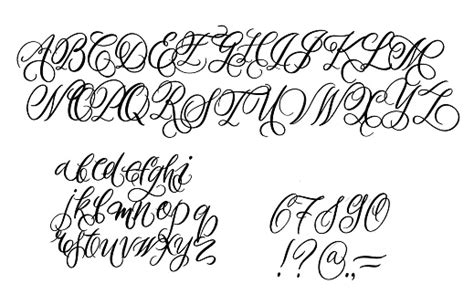 ABCDEFGHIJKLM
NOPQRSTUVWXYZ
abcdefghi
jklmnopq
rstuvwxyz
67890
!?@.,=